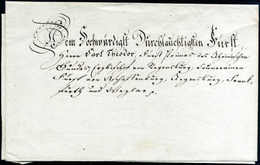 Dem Hochwürdigst Durchlauchtigsten Fürst
Herrn Carl Theodor, Fürst Primas des Rheinischen
Bundes, Erzbischof von Regensburg, Souverainen
Fürst von Aschaffenburg, Regensburg, Frank-
furth und Wetzlar